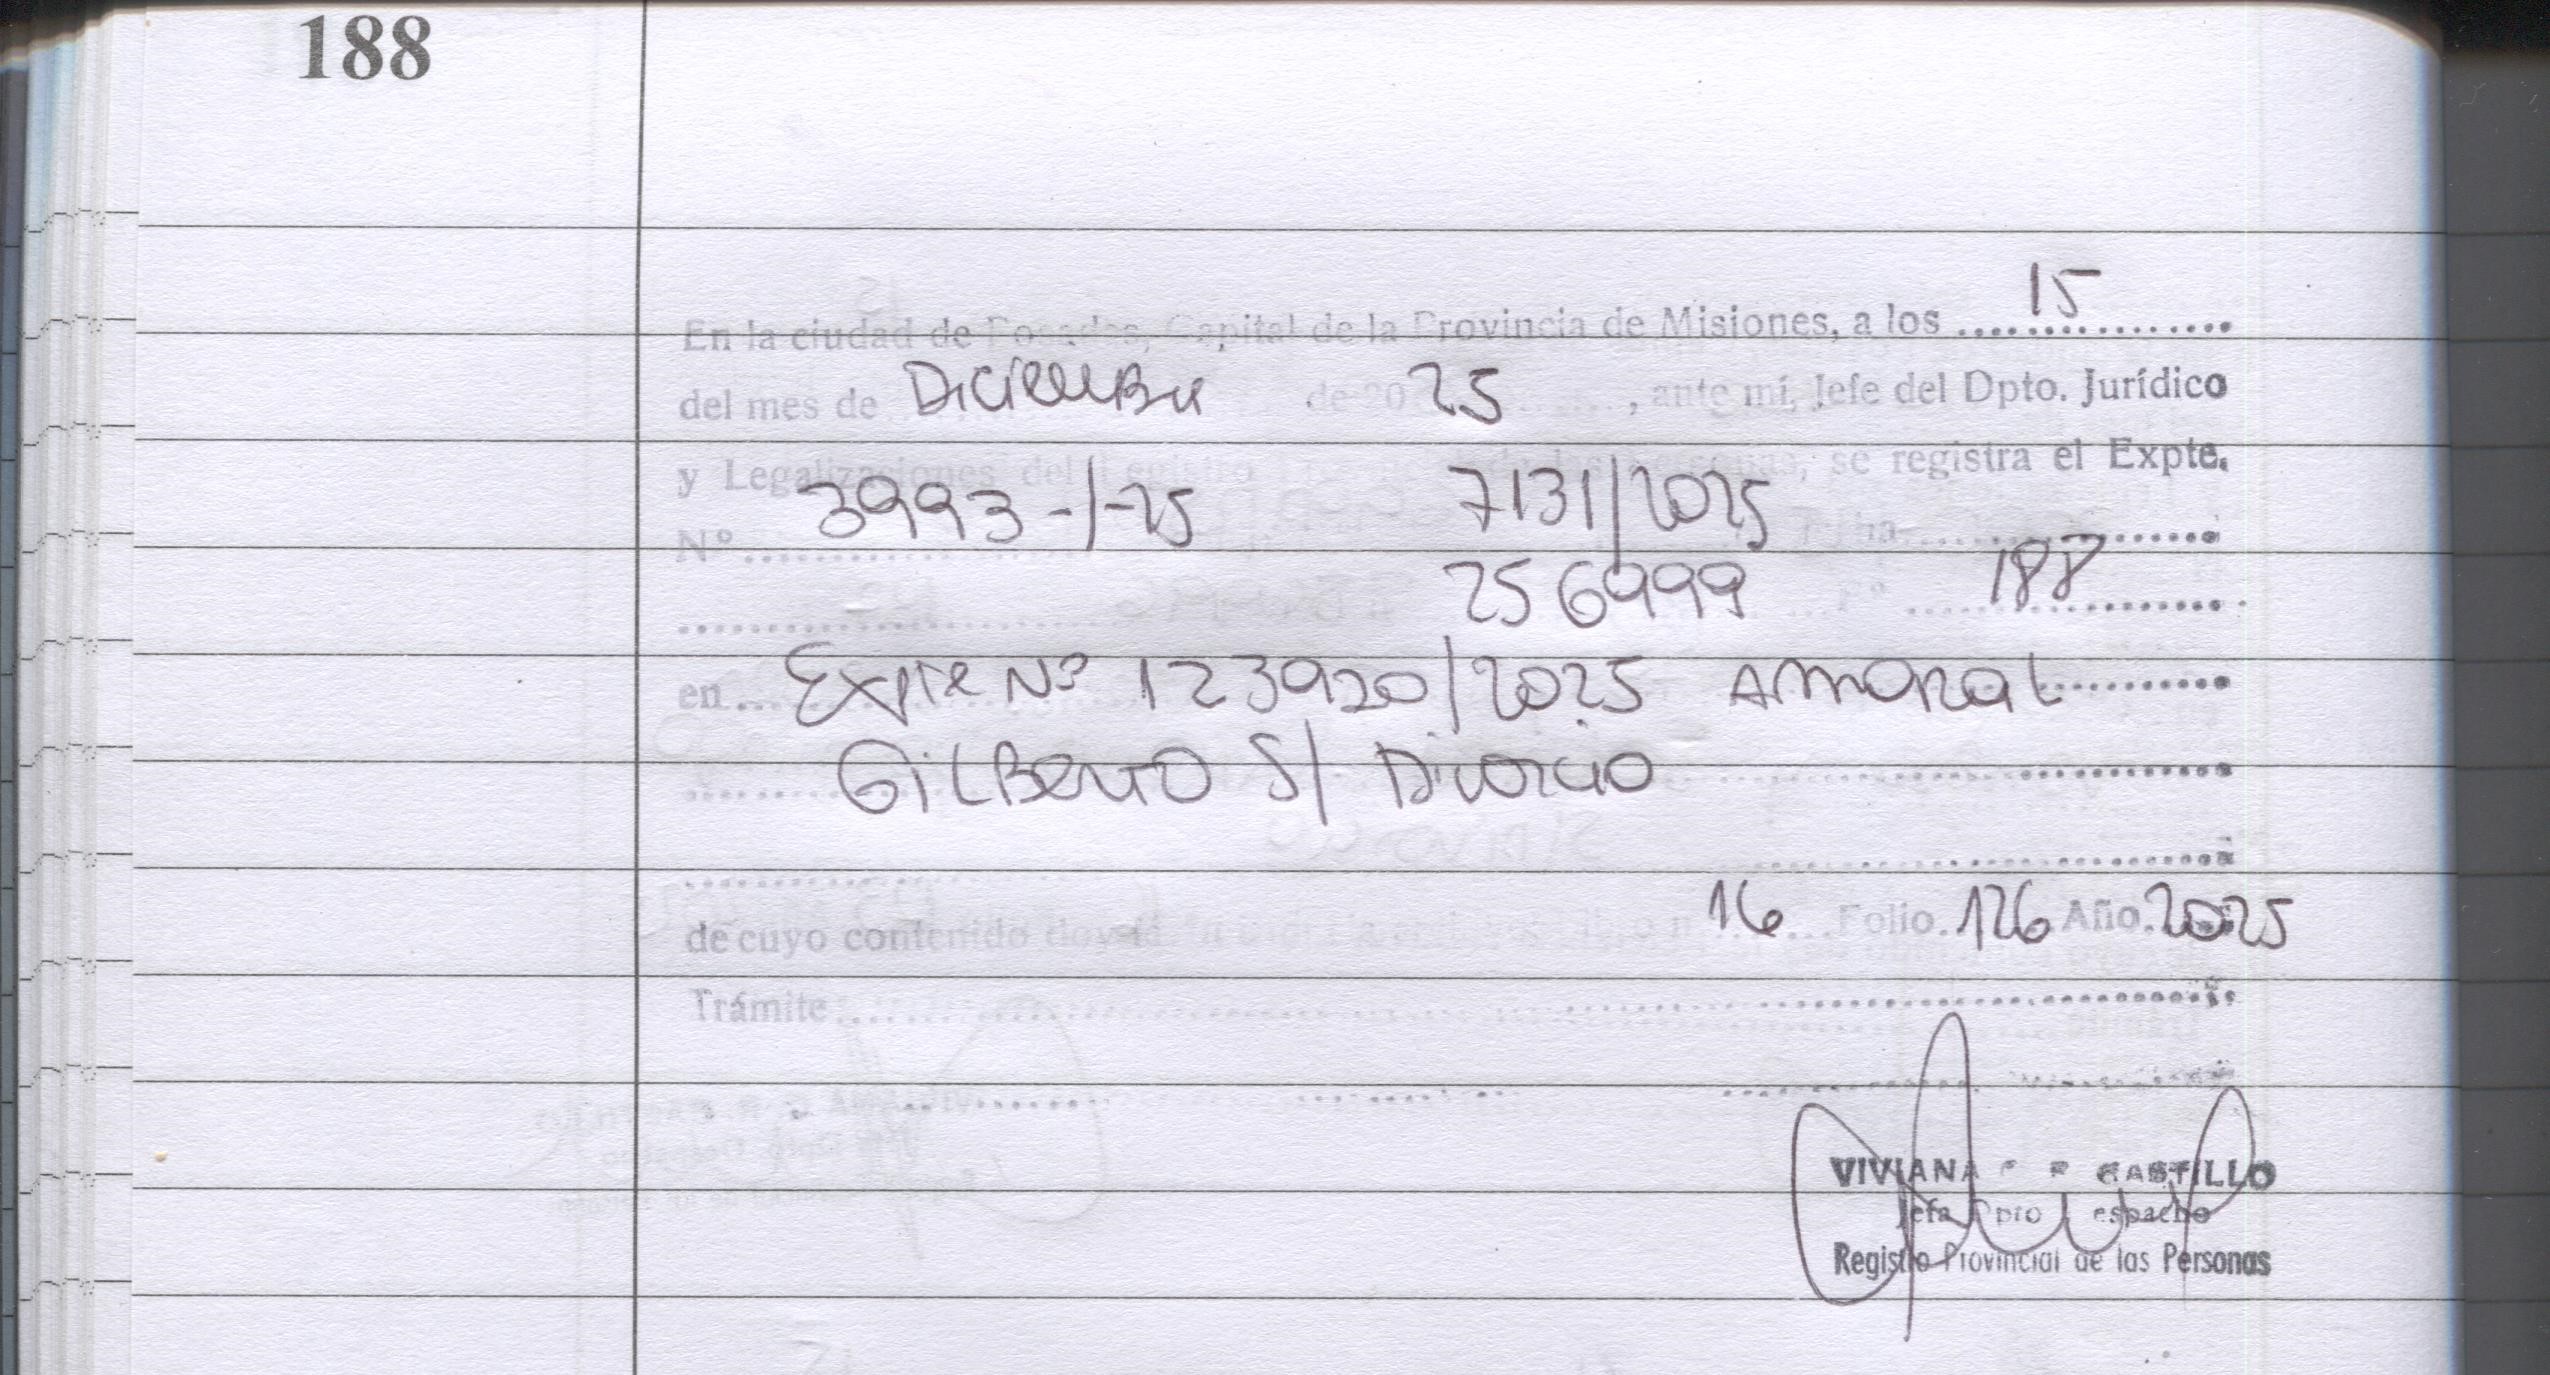 188
En la ciudad de Posadas, Capital de la Provincia de Misiones, a los 15
del mes de Diciembre de 20 25, ante mí, Jefe del Dpto. Jurídico
y Legalizaciones del Registro las Personas, se registra el Expte.
Nº 3993-/-25 7131/2025
256999 188
en Expte Nº 123920/2025 Amaral
Gilberto S/ Divorcio
de cuyo contenido 16 Folio. 126 Año. 2025
Trámite
VIVIANA CASTILLO
Jefa Dpto Despacho
Registro Provincial de las Personas